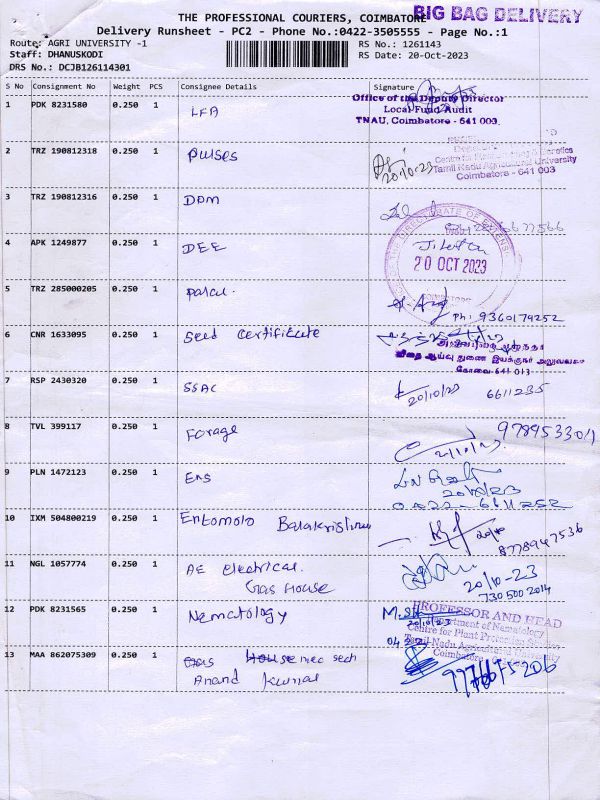 BIG BAG DELIVERY
THE PROFESSIONAL COURIERS, COIMBATORE
Delivery Runsheet - PC2 - Phone No.:0422-3505555 - Page No.:1
Route: AGRI UNIVERSITY -1
RS No.: 1261143
Staff: DHANUSKODI
RS Date: 20-Oct-2023
DRS No.: DCJB126114301
S No Consignment No Weight PCS Consignee Details Signature
1 PDK 8231580 0.250 1 LFA
Office of the Deputy Director
Local Fund Audit
TNAU, Coimbatore - 641 003.
2 TRZ 190812318 0.250 1 Pulses
20/10-23
Tamil Nadu Agricultural University
Coimbatore - 641 003
3 TRZ 190812316 0.250 1 DDM
4 APK 1249877 0.250 1 DEE
20 OCT 2023
COIMBATORE
5 TRZ 285000205 0.250 1
Ph: 9360179252
6 CNR 1633095 0.250 1 Seed Certificate
விதை ஆய்வு துணை இயக்குநர் அலுவலகம்
கோவை-641 013
7 RSP 2430320 0.250 1 SSAC
20/10/23 6611235
8 TVL 399117 0.250 1 Forage
9 PLN 1472123 0.250 1 ENS
20/10/23
0422-6611252
10 IXM 504800219 0.250 1 Entomolo Balakrishnan
8778947536
11 NGL 1057774 0.250 1 AE Electrical.
Gas House
20/10-23
730 500 2014
12 PDK 8231565 0.250 1 Nematology
PROFESSOR AND HEAD
Department of Nematology
Centre for Plant Protection Studies
Tamil Nadu Agricultural University
Coimbatore
13 MAA 862075309 0.250 1
Anand Kumar